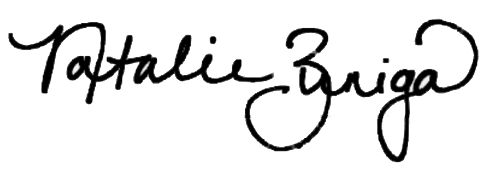 Natalie Zuniga